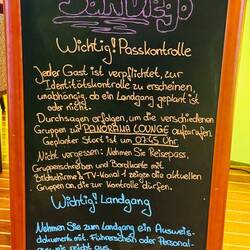 San Diego
Wichtig! Passkontrolle
Jeder Gast ist verpflichtet, zur
Identitätskontrolle zu erscheinen,
unabhängig, ob ein Landgang geplant ist
oder nicht.
Durchsagen erfolgen, um die verschiedenen
Gruppen zur PANORAMA LOUNGE aufzurufen.
Geplanter Start ist um 07.45 Uhr
Nicht vergessen: Nehmen Sie Reisepass,
Gruppenschreiben und Bordkarte mit.
Bildschirme & TV-Kanal 1 zeigen die aktuellen
Gruppen an, die zur Kontrolle dürfen.
Wichtig! Landgang
Nehmen Sie zum Landgang ein Ausweis-
dokument mit. Führerschein oder Personal-
reicht aus.